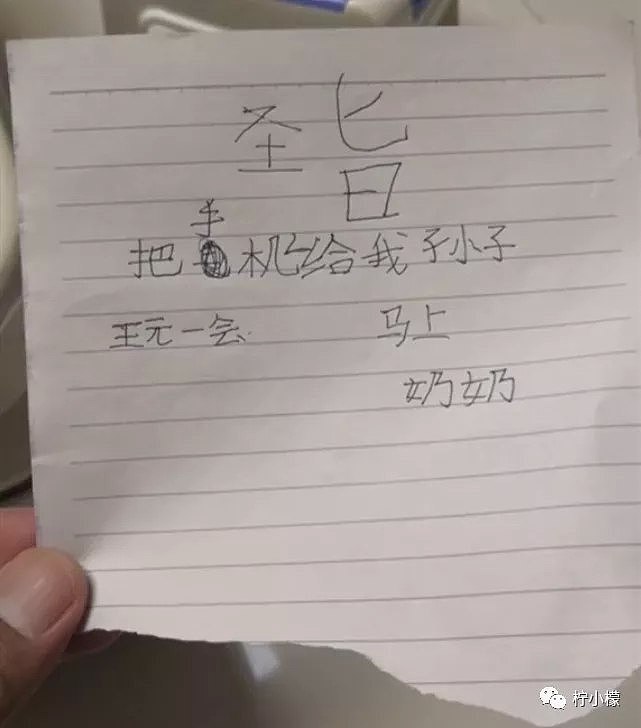 圣旨
把手机给我孙子
玩一会 马上
奶奶
柠小檬